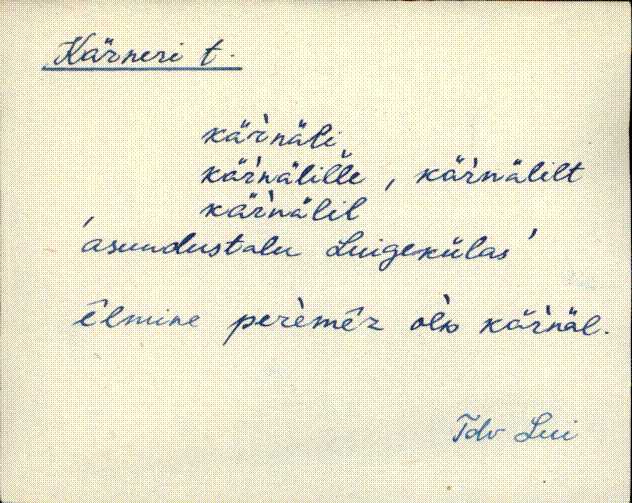 Kärneri t.
kär̀näli
kär̀näliĺle, kär̀nälilt
kär̀nälil
'asundustalu Luigekülas'
êlmine perèmêz oĺo kär̀näl.
Tdv Lui